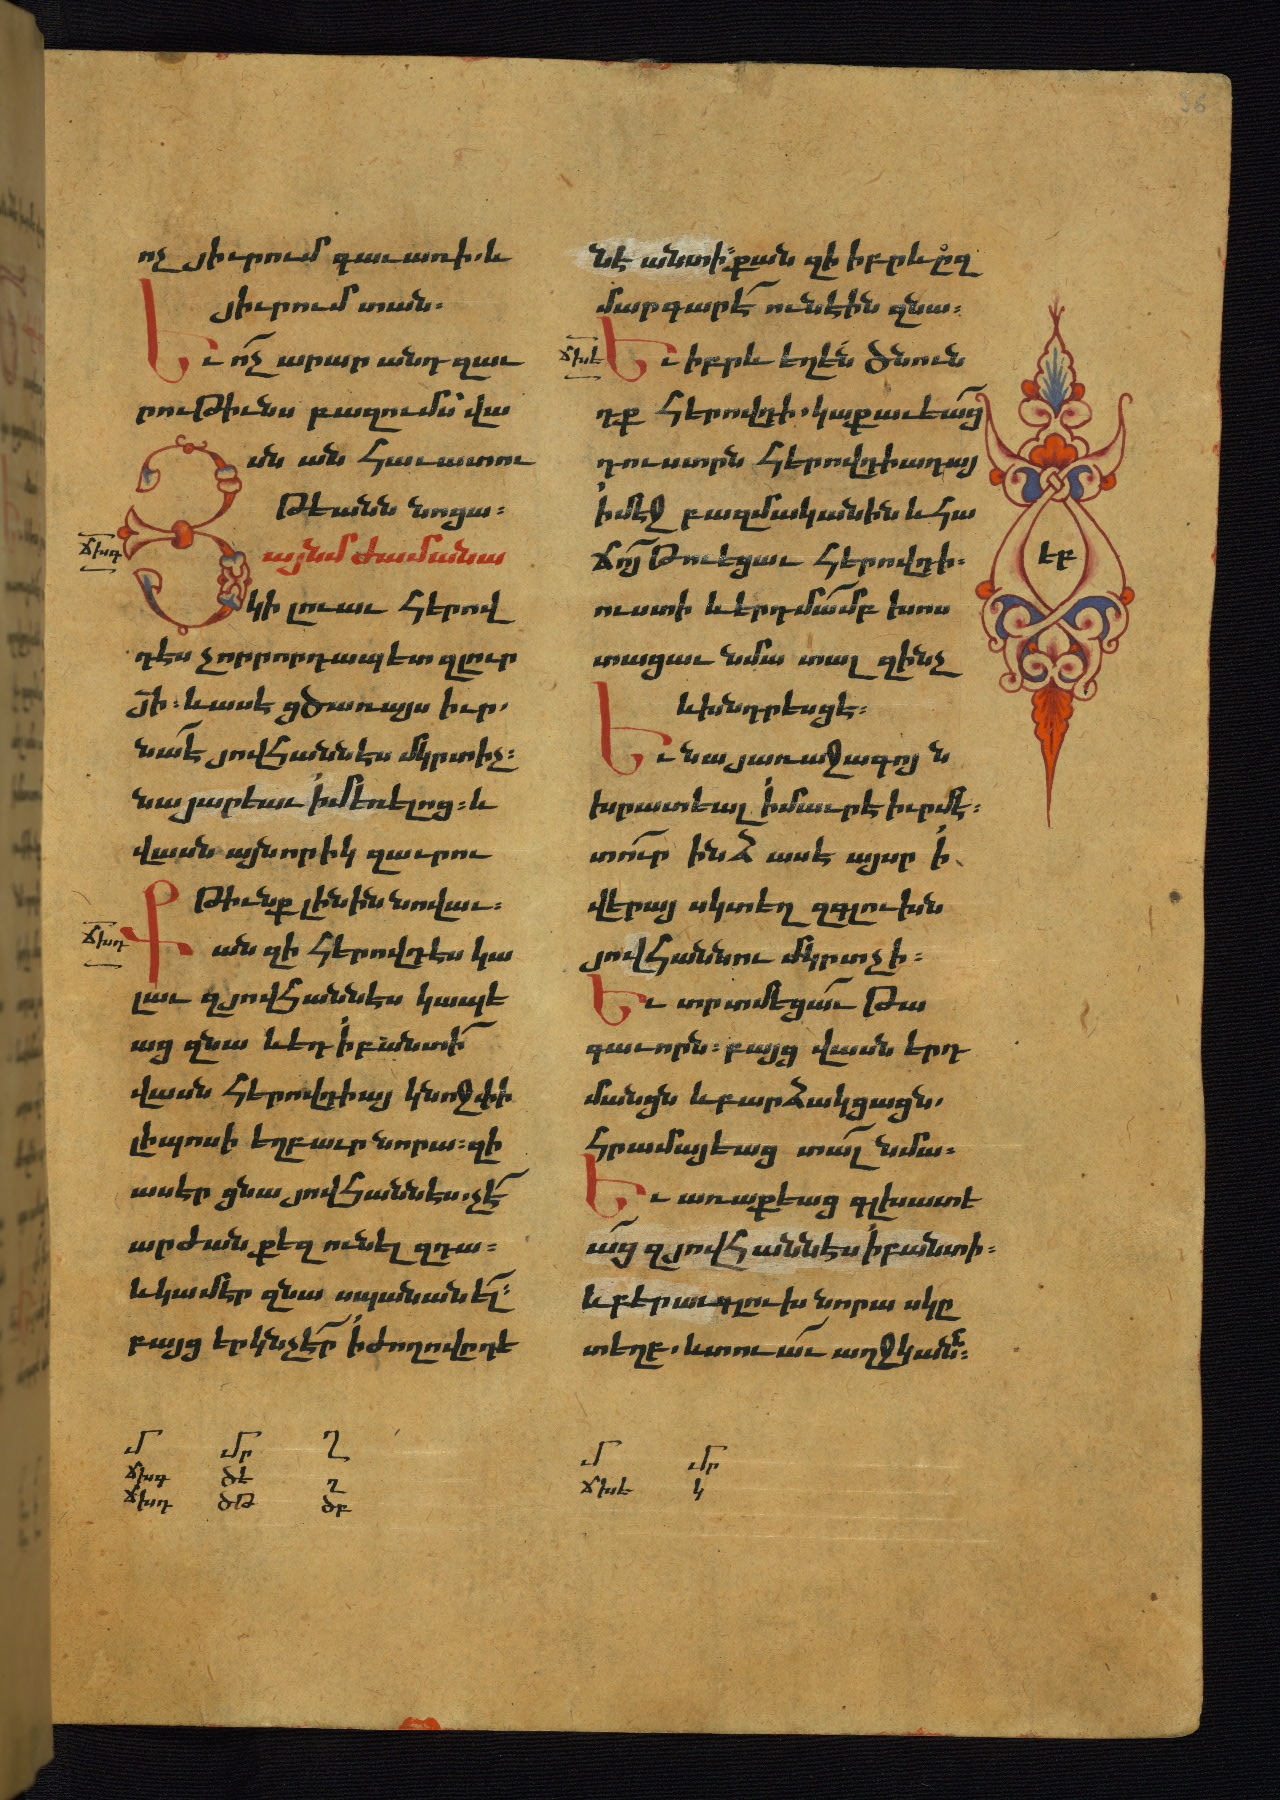 ոչ յիւրում գաւառի. և
յիւրում տան։
Եւ ոչ արար անդ զաւ
րութիւնս բազումս՝ վա
սն ան հաւատու
թեանն նոցա։
ՃԽԳ
Յայնմ ժամանա
կի լուաւ հերով
դէս չորրորդապետ զլուր
յի։ և ասէ ցծառայս իւր.
նա է յովհաննէս մկրտիչ։
նա յարեաւ ի մեռելոց։ և
վասն այնորիկ զաւրու
թիւնք լինին նովաւ։
ՃԽԴ
Քան զի հերովդէս կա
լաւ զյովհաննէս կապե
աց զնա և եդ ի բանտի
վասն հերովդիայ կնոջ փի
լիպոսի եղբաւր նորա։ զի
ասէր ցնա յովհաննէս. չէ
արժան քեզ ունել զդա։
և կամէր զնա սպանանել։
բայց երկնչէր ի ժողովըրդե
նէ անտի։ քան զի իբրև ըզ
մարգարէ ունէին զնա։
ՃԽԵ
Եւ իբրև եղէն ծնուն
դք հերովդի. կաքաւեաց
դուստրն հերովդիադայ
ի մէջ բազմականին և հա
ճոյ թուեցաւ հերովդի։
ուստի և երդմամբ խոս
տացաւ նմա տալ զինչ
և խնդրեսցէ։
Եւ նա յառաջագոյն
խրատեալ ի մաւրէ իւրմէ։
տուր ինձ ասէ այսր ի
վերայ սկտեղ զգլուխն
յովհաննու մկրտչի։
Եւ տրտմեցաւ թա
գաւորն։ բայց վասն երդ
մանցն և բարձակցացն.
հրամայեաց տալ նմա։
Եւ առաքեաց գլխատե
աց զյովհաննէս ի բանտի։
և բերաւ գլուխ նորա սկը
տեղբ. և տուաւ աղջկանն։
էբ
Մ Մր Ղ
ՃԽԳ ԾԷ Ղ
ՃԽԴ ԾԹ ԾԲ
Մ Մր
ՃԽԵ Կ
56